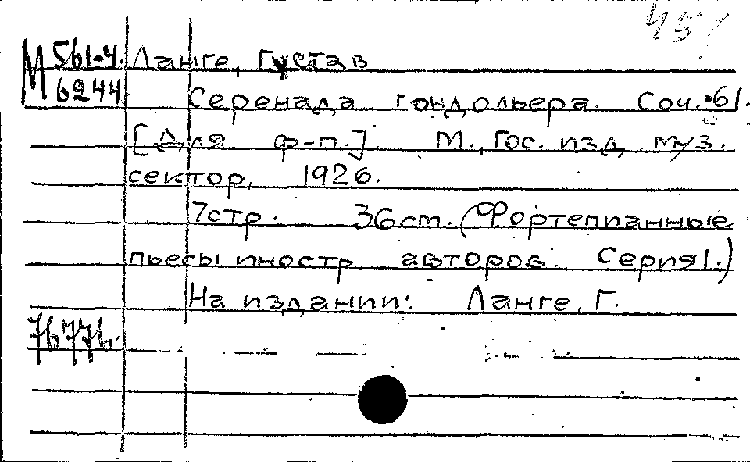 М 561-4 Ланге, Густав
6244 Серенада гондольера. Соч. 61.
[Для ф-п.] М., Гос. изд. муз.
сектор, 1926.
7стр. 36см. (Фортепианные
пьесы иностр авторов. Серия I.)
На издании: Ланге, Г.